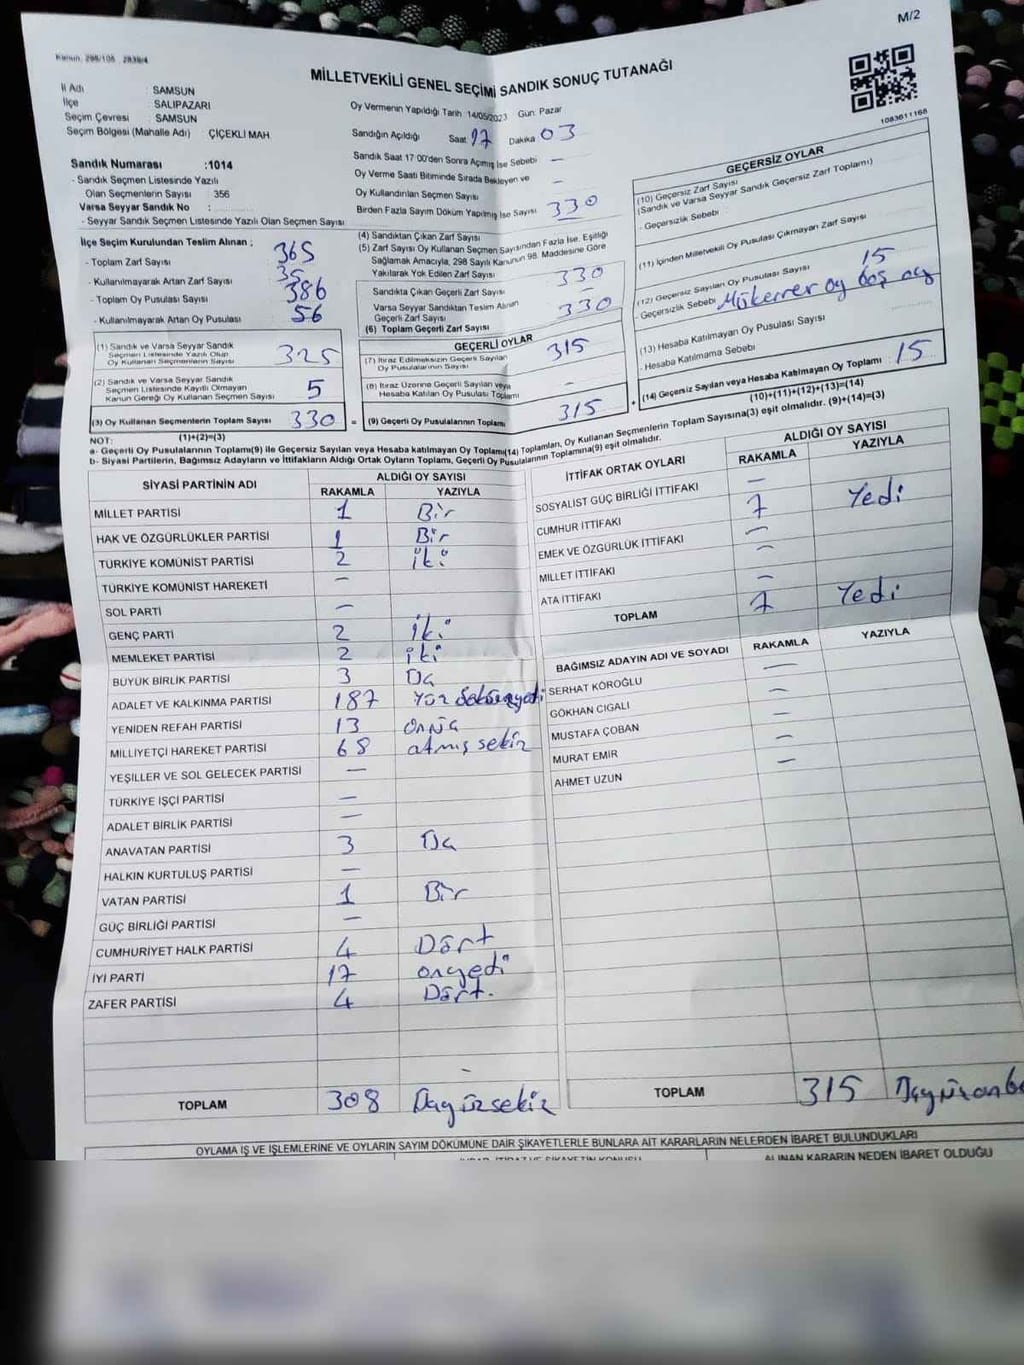 M/2
Kanun, 298/105 2839/4
MİLLETVEKİLİ GENEL SEÇİMİ SANDIK SONUÇ TUTANAĞI
1083611168
İl Adı : SAMSUN
İlçe : SALIPAZARI
Seçim Çevresi : SAMSUN
Seçim Bölgesi (Mahalle Adı) ÇİÇEKLİ MAH
Sandık Numarası :1014
- Sandık Seçmen Listesinde Yazılı
Olan Seçmenlerin Sayısı 356
Varsa Seyyar Sandık No :
- Seyyar Sandık Seçmen Listesinde Yazılı Olan Seçmen Sayısı
Oy Vermenin Yapıldığı Tarih 14/05/2023 Gün: Pazar
Sandığın Açıldığı Saat 17 Dakika 03
Sandık Saat 17:00'den Sonra Açmış İse Sebebi –
Oy Verme Saati Bitiminde Sırada Bekleyen ve –
Oy Kullandırılan Seçmen Sayısı
Birden Fazla Sayım Döküm Yapılmış İse Sayısı 330
İlçe Seçim Kurulundan Teslim Alınan ;
- Toplam Zarf Sayısı 365
- Kullanılmayarak Artan Zarf Sayısı 35
- Toplam Oy Pusulası Sayısı 386
- Kullanılmayarak Artan Oy Pusulası 56
(1) Sandık ve Varsa Seyyar Sandık
Seçmen Listesinde Yazılı Olup
Oy Kullanan Seçmenlerin Sayısı 325
(2) Sandık ve Varsa Seyyar Sandık
Seçmen Listesinde Kayıtlı Olmayan
Kanun Gereği Oy Kullanan Seçmen Sayısı 5
(3) Oy Kullanan Seçmenlerin Toplam Sayısı 330
(1)+(2)=(3)
(4) Sandıktan Çıkan Zarf Sayısı
(5) Zarf Sayısı Oy Kullanan Seçmen Sayısından Fazla İse, Eşitliği
Sağlamak Amacıyla, 298 Sayılı Kanunun 98. Maddesine Göre
Yakılarak Yok Edilen Zarf Sayısı 330
Sandıkta Çıkan Geçerli Zarf Sayısı –
Varsa Seyyar Sandıktan Teslim Alınan
Geçerli Zarf Sayısı 330
(6) Toplam Geçerli Zarf Sayısı
GEÇERLİ OYLAR
(7) İtiraz Edilmeksizin Geçerli Sayılan
Oy Pusulalarının Sayısı 315
(8) İtiraz Üzerine Geçerli Sayılan veya
Hesaba Katılan Oy Pusulası Toplamı –
= (9) Geçerli Oy Pusulalarının Toplamı 315
GEÇERSİZ OYLAR
(10) Geçersiz Zarf Sayısı
(Sandık ve Varsa Seyyar Sandık Geçersiz Zarf Toplamı)
- Geçersizlik Sebebi
(11) İçinden Milletvekili Oy Pusulası Çıkmayan Zarf Sayısı
(12) Geçersiz Sayılan Oy Pusulası Sayısı 15
- Geçersizlik Sebebi Mükerrer oy boş oy
(13) Hesaba Katılmayan Oy Pusulası Sayısı
- Hesaba Katılmama Sebebi
+ (14) Geçersiz Sayılan veya Hesaba Katılmayan Oy Toplamı 15
(10)+(11)+(12)+(13)=(14)
NOT:
a- Geçerli Oy Pusulalarının Toplamı(9) ile Geçersiz Sayılan veya Hesaba katılmayan Oy Toplamı(14) Toplamları, Oy Kullanan Seçmenlerin Toplam Sayısına(3) eşit olmalıdır. (9)+(14)=(3)
b- Siyasi Partilerin, Bağımsız Adayların ve İttifakların Aldığı Ortak Oyların Toplamı, Geçerli Oy Pusulalarının Toplamına(9) eşit olmalıdır.
SİYASİ PARTİNİN ADI ALDIĞI OY SAYISI
RAKAMLA YAZIYLA
MİLLET PARTİSİ 1 Bir
HAK VE ÖZGÜRLÜKLER PARTİSİ 1 Bir
TÜRKİYE KOMÜNİST PARTİSİ 2 iki
TÜRKİYE KOMÜNİST HAREKETİ –
SOL PARTİ –
GENÇ PARTİ 2 iki
MEMLEKET PARTİSİ 2 iki
BÜYÜK BİRLİK PARTİSİ 3 Üç
ADALET VE KALKINMA PARTİSİ 187 Yüz seksenyedi
YENİDEN REFAH PARTİSİ 13 onüç
MİLLİYETÇİ HAREKET PARTİSİ 68 atmış sekiz
YEŞİLLER VE SOL GELECEK PARTİSİ –
TÜRKİYE İŞÇİ PARTİSİ –
ADALET BİRLİK PARTİSİ –
ANAVATAN PARTİSİ 3 Üç
HALKIN KURTULUŞ PARTİSİ –
VATAN PARTİSİ 1 Bir
GÜÇ BİRLİĞİ PARTİSİ –
CUMHURİYET HALK PARTİSİ 4 Dört
İYİ PARTİ 17 onyedi
ZAFER PARTİSİ 4 Dört.
TOPLAM 308 Üçyüzsekiz
İTTİFAK ORTAK OYLARI ALDIĞI OY SAYISI
RAKAMLA YAZIYLA
SOSYALİST GÜÇ BİRLİĞİ İTTİFAKI –
CUMHUR İTTİFAKI 7 Yedi
EMEK VE ÖZGÜRLÜK İTTİFAKI –
MİLLET İTTİFAKI –
ATA İTTİFAKI –
TOPLAM 7 Yedi
BAĞIMSIZ ADAYIN ADI VE SOYADI RAKAMLA YAZIYLA
SERHAT KÖROĞLU –
GÖKHAN CIGALI –
MUSTAFA ÇOBAN –
MURAT EMİR –
AHMET UZUN –
TOPLAM 315
OYLAMA İŞ VE İŞLEMLERİNE VE OYLARIN SAYIM DÖKÜMÜNE DAİR ŞİKAYETLERLE BUNLARA AİT KARARLARIN NELERDEN İBARET BULUNDUKLARI
ALINAN KARARIN NEDEN İBARET OLDUĞU